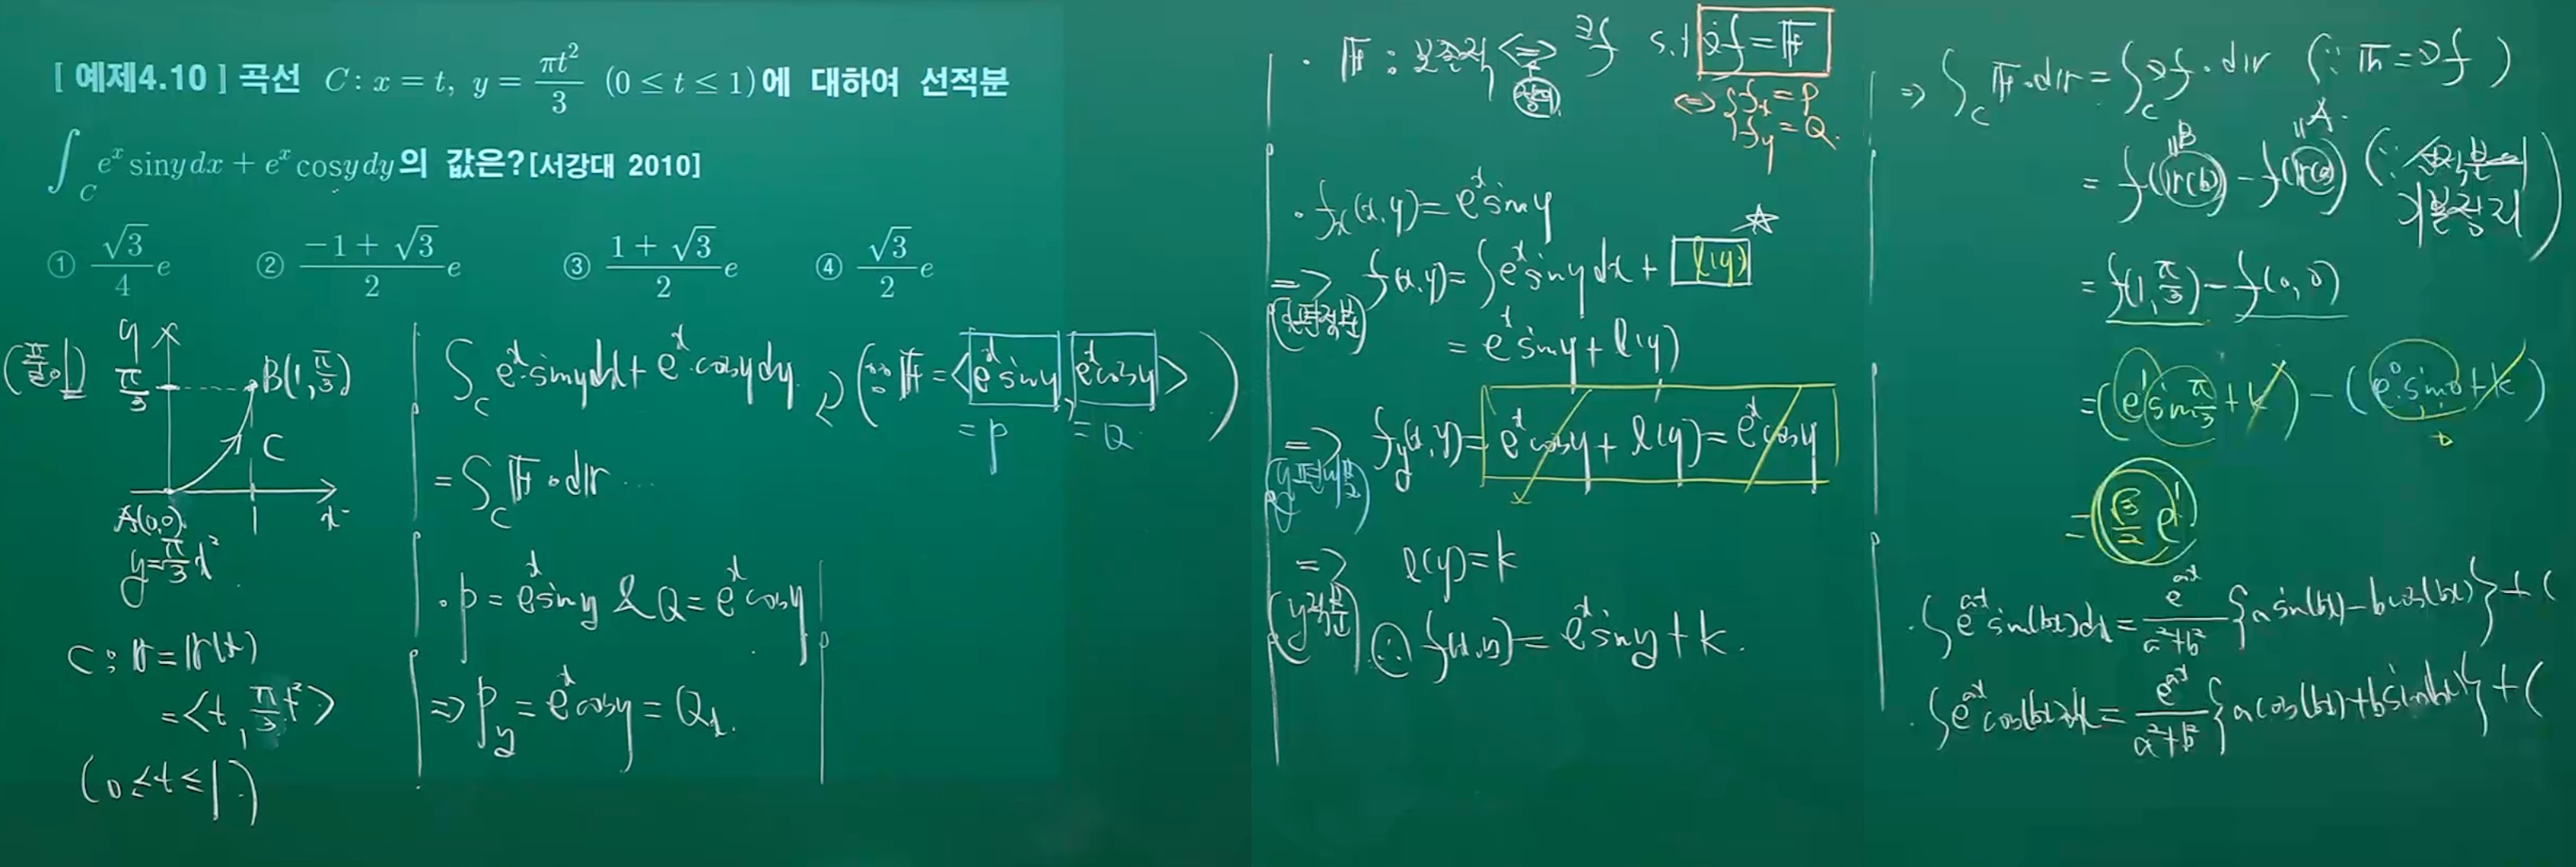 [ 예제4.10 ] 곡선 C : x = t, y = πt²/3 (0 ≤ t ≤ 1)에 대하여 선적분
∫_C e^x siny dx + e^x cosy dy의 값은? [서강대 2010]
① √3/4 e ② (-1 + √3)/2 e ③ (1 + √3)/2 e ④ √3/2 e
y
π/3
B(1, π/3)
C
A(0,0) 1 x
y = π/3 x²
C : r = r(t)
= <t, π/3 t²>
(0 ≤ t ≤ 1)
∫_C e^x siny dx + e^x cosy dy (∵ F = <e^x siny, e^x cosy>)
= P = Q
= ∫_C F · dr
· P = e^x siny & Q = e^x cosy
⇒ P_y = e^x cosy = Q_x
· F : 보존장 ⇔ ∃f s.t ∇f = F
⇔ { f_x = P
f_y = Q
· f_x(x,y) = e^x siny
⇒ f(x,y) = ∫ e^x siny dx + l(y)
= e^x siny + l(y)
⇒ f_y(x,y) = e^x cosy + l'(y) = e^x cosy
⇒ l(y) = k
∴ f(x,y) = e^x siny + k.
⇒ ∫_C F · dr = ∫_C ∇f · dr (∵ F = ∇f)
"B "A
= f(r(b)) - f(r(a))
= f(1, π/3) - f(0, 0)
= (e^1 sin π/3 + k) - (e^0 sin0 + k)
= √3/2 e^1
· ∫ e^{ax} sin(bx) dx = e^{ax}/(a²+b²) {a sin(bx) - b cos(bx)} + C
· ∫ e^{ax} cos(bx) dx = e^{ax}/(a²+b²) {a cos(bx) + b sin(bx)} + C